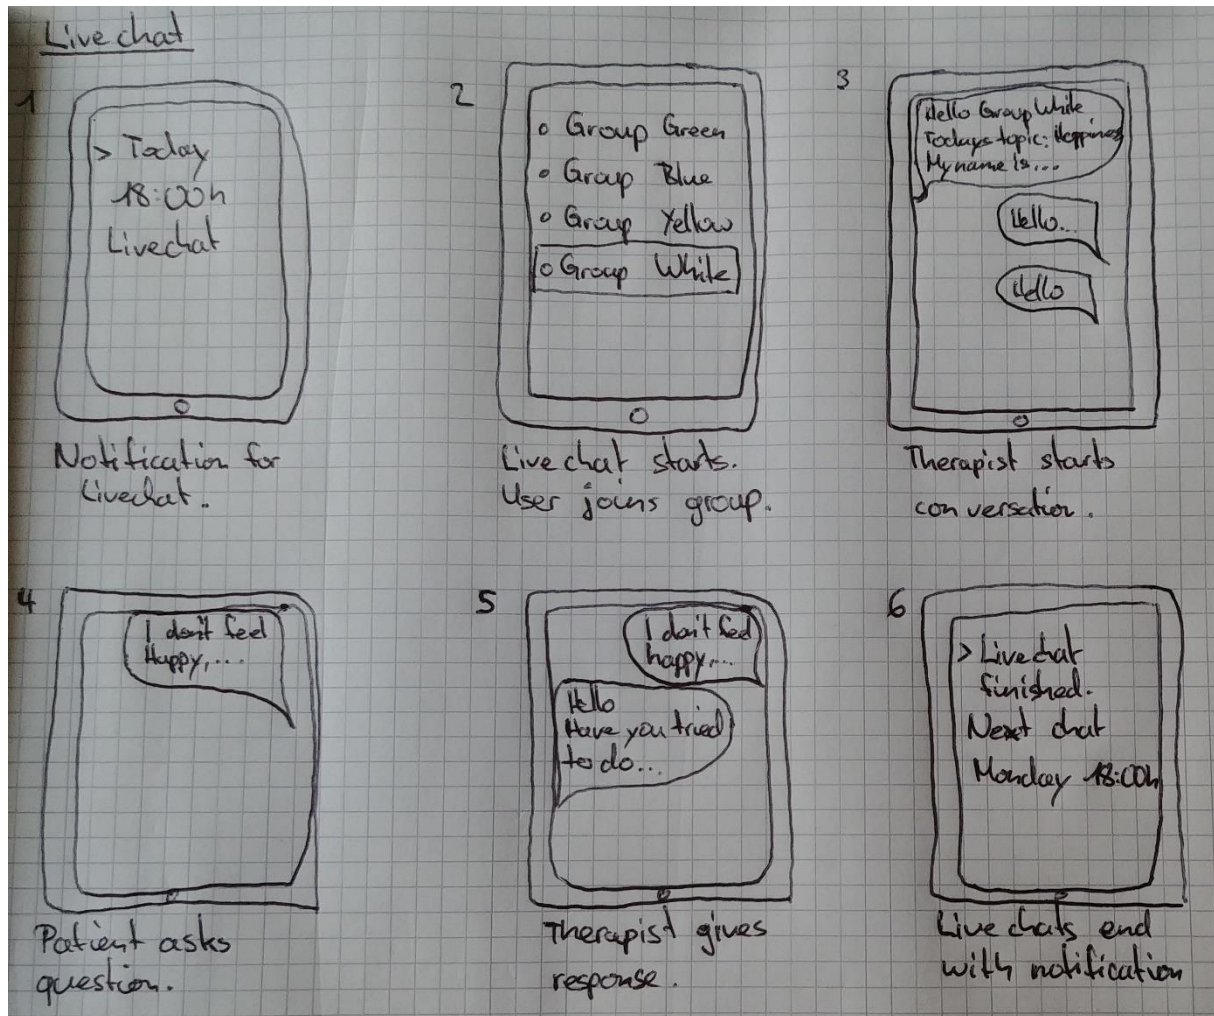 Live chat
1
> Today
18:00h
Livechat
Notification for
Livechat.
2
o Group Green
o Group Blue
o Group Yellow
o Group White
Live chat starts.
User joins group.
3
Hello Group White
Todays topic: Happiness
My name is...
Hello...
Hello
Therapist starts
conversation.
4
I don't feel
Happy,...
Patient asks
question.
5
I don't feel
happy,...
Hello
Have you tried
to do...
Therapist gives
response.
6
> Livechat
finished.
Next chat
Monday 18:00h
Live chats end
with notification